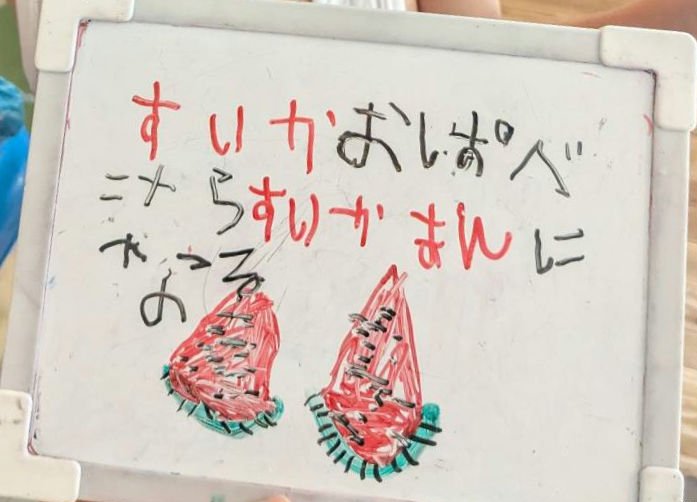 すいかおいぱべ
こたらすいかまんに
なつる
よ